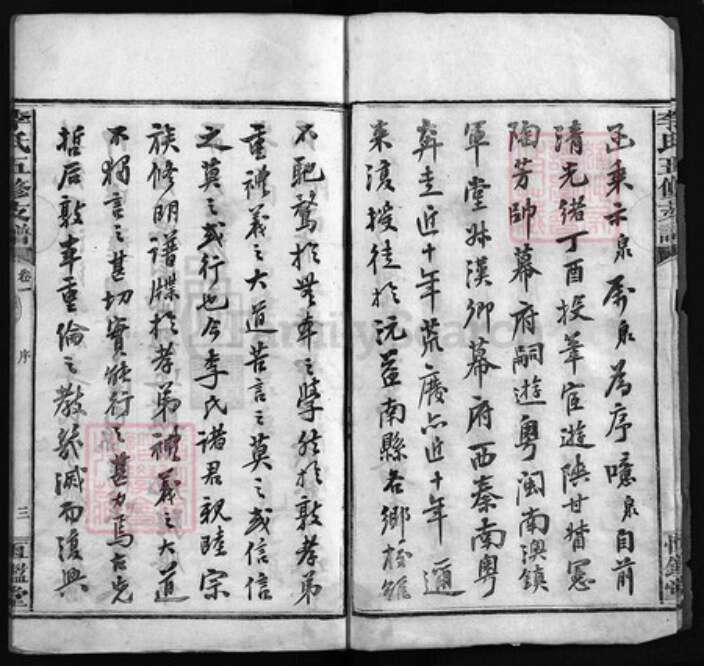 函乘示泉属泉為序噫泉自前
清光緒丁酉投筆宦遊陝甘督憲
陶芳帥幕府嗣遊粵閩南澳鎮
軍堂妹漢卿幕府西秦南粵
奔走近十年荒廢亦近十年邇
來復授徒於沅益南縣各鄉校雖
不馳騖於無車之學然於敦孝弟
重禮義之大道苦言之莫之或信信
之莫之或行也今李氏諸君親睦宗
族修明譜牒於孝弟禮義之大道
不獨言之甚切實能行之甚力焉古先
哲后敦本重倫之教幾滅而復興
李氏五修支譜
卷一
序
三